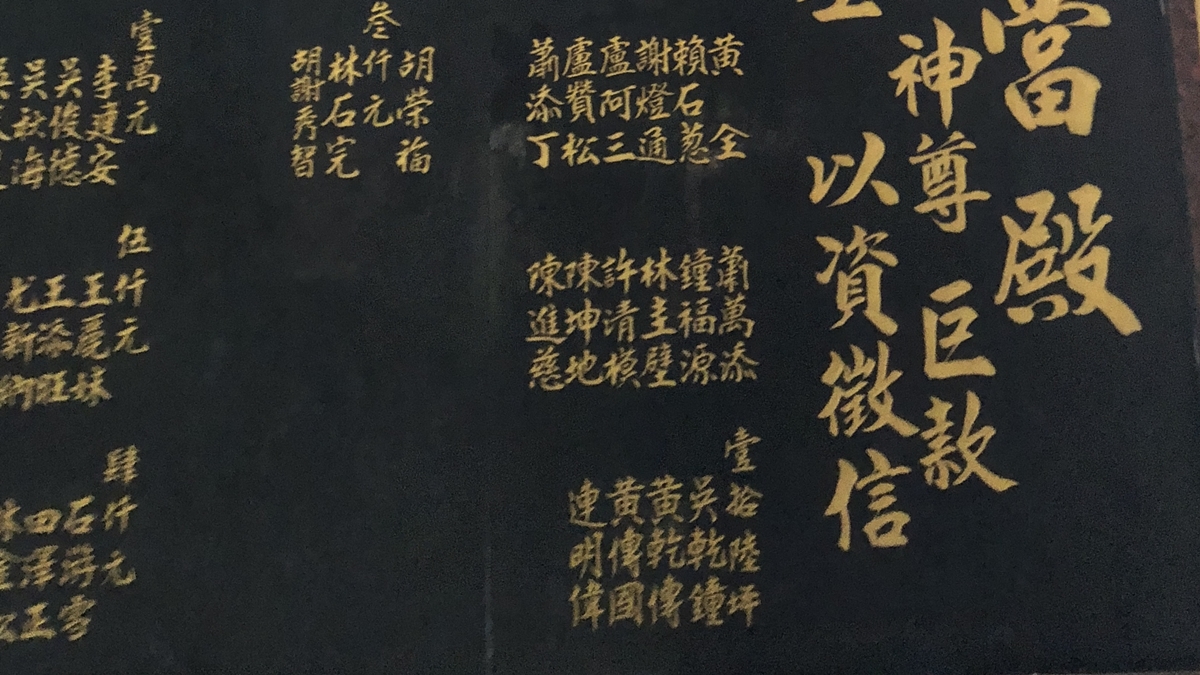 當殿
神尊巨款
以資徵信
黃全
賴石蔥
謝燈通
盧阿三
盧贊松
蕭添丁
蕭萬添
鐘福源
林圭壁
許清模
陳坤地
陳進慈
壹拾陸坪
吳乾鐘
黃乾傳
黃傳國
連明偉
胡榮福
叁仟元
林石完
胡謝秀智
壹萬元
李建安
吳俊德
吳秋海
伍仟元
王麗妹
王添旺
尤新
肆仟元
石游雪
田澤正